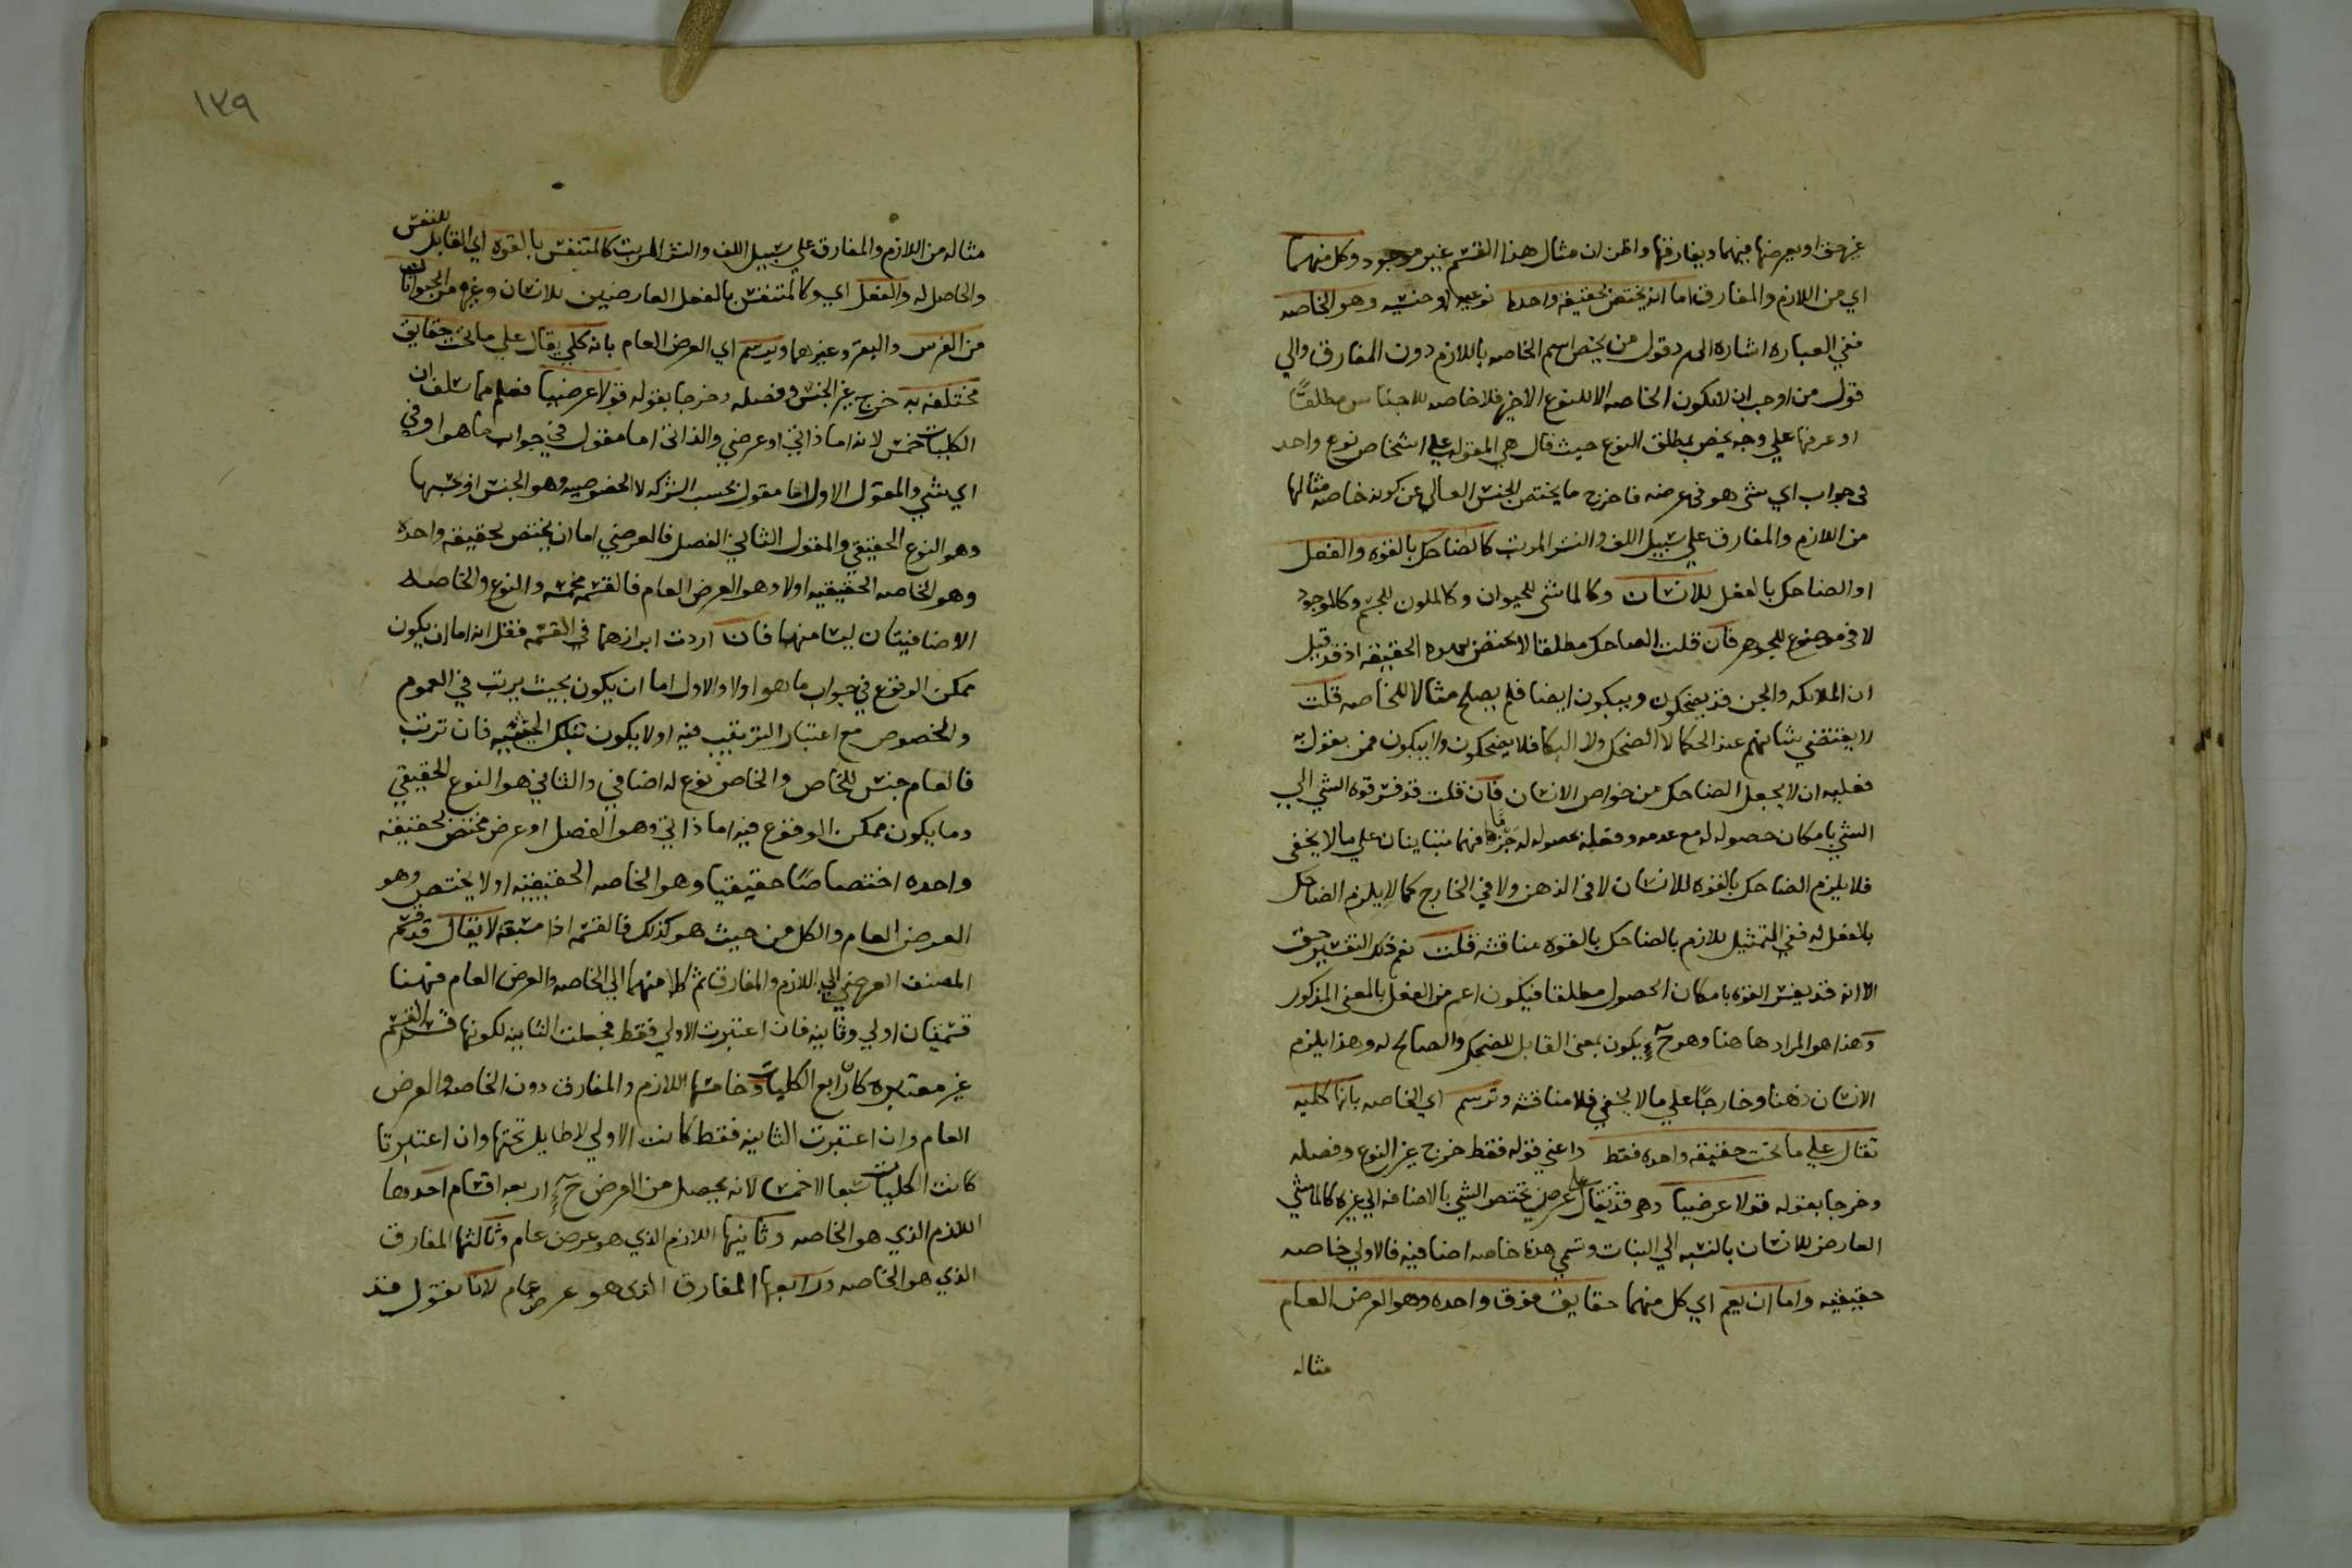 او يعرضها فيهما ويفارقها واظن ان مثال هذا القسم غير موجود وكل منهما
اي من اللازم والمفارق اما ان يختص بحقيقة واحدة نوعيه او جنسيه وهو الخاصه
ففي العباره اشاره الى رد قول من يخص اسم الخاصه باللازم دون المفارق والي
قول من اوجب ان لا تكون الخاصه الا للنوع الاخير فلا خاصه للاجناس مطلقًا
او عرفها علي وجه يخص بمطلق النوع حيث قال هي المقوله علي اشخاص نوع واحد
في جواب اي شي هو في عرضه فاخرج ما يختص الجنس العالي عن كونه خاصه مثالها
من اللازم والمفارق علي سبيل اللف والنشر المرتب كالضاحك بالقوه والفعل
او الضاحك بالفعل للانسان وكالماشي للحيوان وكالملون للجسم وكالموجود
لا في موضوع للجوهر فان قلت الضاحك مطلقا لا يختص بهده الحقيقه اذ قد قيل
ان الملائكه والجن قد يضحكون ويبكون ايضا فلم يصلح مثالا للخاصه قلت
لا يقتضي شانهم عند الحكما لا الضحك ولا البكا فلا يضحكون ولا يبكون فمن يقول به
فعليه ان لا يجعل الضاحك من خواص الانسان فان قلت قد فسر قوة الشي الي
الشي بامكان حصوله له مع عدمه وفعله بحصوله له فهما متباينان علي ما لا يخفى
فلا يلزم الضاحك بالقوه للانسان لا في الذهن ولا في الخارج كما لا يلزم الضاحك
بالفعل له ففي التمثيل للازم بالضاحك بالقوه مناقشه قلت نعم ذلك التفسير حق
الا انه قد يفسر القوه بامكان الحصول مطلقا فيكون اعم من الفعل بالمعنى المذكور
وهذا هو المراد هاهنا وهو ح يكون بمعنى القابل للضحك والصالح له وهذا يلزم
الانسان ذهنا وخارجًا علي ما لا يخفي فلا مناقشه وترسم اي الخاصه بانها كليه
تقال علي ما تحت حقيقه واحده فقط واعني قوله فقط خرج غير النوع وفصله
وخرجا بقوله قولا عرضيا وهو قد يقال علي عرضي يختص الشي بالاضافه الي غيره كالماشي
العارض للانسان بالنسبه الي النبات وتسمي هذه خاصه اضافيه فالاولي خاصه
حقيقيه واما ان يعم اي كل منهما حقايق فوق واحده وهو العرض العام
مثاله
١٢٩
مثاله من اللازم والمفارق علي سبيل اللف والنشر المرتب كالمتنفس بالقوه اي القابل للتنفس
والحاصل له والفعل اي وكالمتنفس بالفعل العارضين للانسان وغيره من الحيوانات
من الفرس والبقر وغيرهما ويرسم اي العرض العام بانه كلي يقال علي ما تحت حقايق
مختلفه به خرج غير الجنس وفصله وخرجا بقوله قولا عرضيا فعلم مما سلف ان
الكليات خمس لانه اما ذاتي او عرضي والذاتي اما مقول في جواب ما هو او في
اي شي والمقول الاول اما مقول بحسب الشركه لا الخصوصيه وهو الجنس او بحسبها
وهو النوع الحقيقي والمقول الثاني الفصل فالعرضي اما ان يختص بحقيقه واحده
وهو الخاصه الحقيقيه اولا وهو العرض العام فالقسمه مخمسه والنوع والخاصه
الاضافيتان ليسا منها فان اردت ابرازهما في القسمه فقل انه اما ان يكون
ممكن الوقوع في جواب ما هو اولا والاول اما ان يكون بحيث يرتب في العموم
والخصوص مع اعتبار الترتيب فيه اولا يكون بتلك الحيثيه فان ترتب
فالعام جنس للخاص والخاص نوع له اضافي والثاني هو النوع الحقيقي
وما يكون ممكن الوقوع فيه اما ذاتي وهو الفصل او عرض مختص بحقيقه
واحده اختصاصًا حقيقيا وهو الخاصه الحقيقيه اولا يختص وهو
العرض العام والكل من حيث هو كذلك فالقسمه اذا مسبقه لا يقال قد قسم
المصنف العرضي الي اللازم والمفارق ثم كلا منهما الي الخاصه والعرض العام فهنا
قسمتان اولي وثانيه فان اعتبرت الاولي فقط فجعلت الثانيه لكونها قسم القسم
غير معتبره كان رابع الكليات وخامسها اللازم والمفارق دون الخاصه والعرض
العام وان اعتبرت الثانيه فقط كانت الاولي لا طايل تحتها وان اعتبرتا
كانت الكليات سبعا لا خمسا لانه يحصل من العرض ح اربعه اقسام احدها
اللازم الذي هو الخاصه وثانيها اللازم الذي هو عرض عام وثالثها المفارق
الذي هو الخاصه ورابعها المفارق الذي هو عرض عام لانا نقول قد